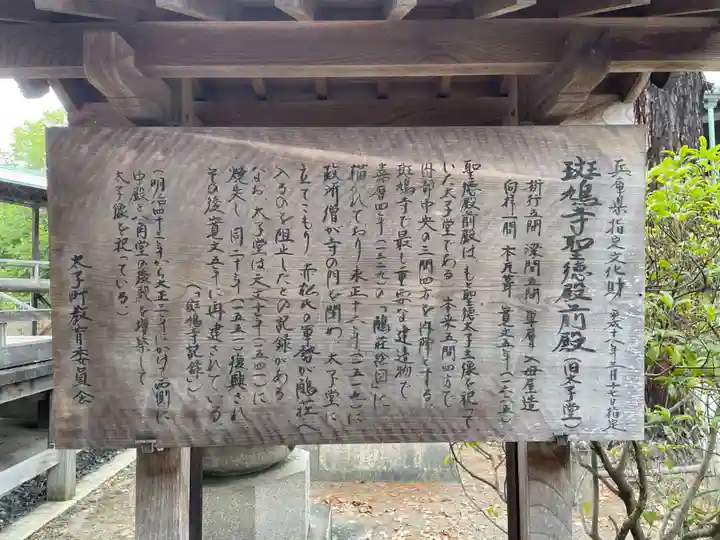 兵庫県指定文化財 平成十八年三月十七日指定
斑鳩寺聖徳殿前殿（旧太子堂）
桁行五間 梁間五間 単層 入母屋造
向拝一間 本瓦葺 寛文五年（一六六五）
聖徳殿前殿は、もと聖徳太子立像を祀って
いた太子堂である。本来五間四方で
内部中央の三間四方を内陣とする
斑鳩寺で最も重要な建造物で
嘉暦四年（一三二九）の「鵤荘絵図」に
描かれており、永正十六年（一五一九）に
政所僧が寺の門を閉め、太子堂に
立てこもり、赤松氏の軍勢が鵤荘へ
入るのを阻止したとの記録がある
なお、太子堂は天文十年（一五四一）に
焼失し、同二十年（一五五一）復興され
その後、寛文五年に再建されている
（「斑鳩寺記録」）
（明治四十三年から大正二年にかけ、西側に
中殿、八角堂の後殿を増築して
太子像を祀っている）
太子町教育委員会